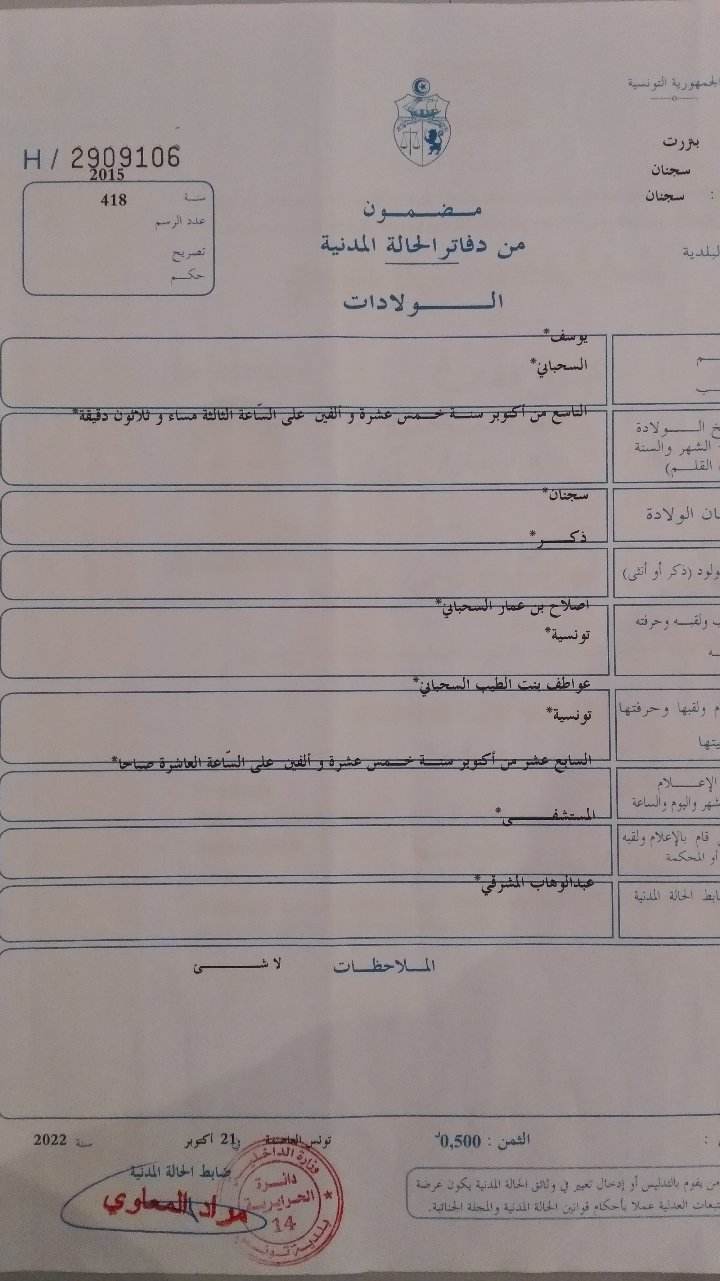 الجمهورية التونسية
بنزرت
سجنان
: سجنان
البلدية
H / 2909106
2015
سنة 418
عدد الرسم
تصريح
حكم
مضمون
من دفاتر الحالة المدنية
الولادات
يوسف*
السحباني*
التاسع من أكتوبر سنة خمس عشرة و ألفين على السّاعة الثالثة مساء و ثلاثون دقيقة*
الولادة
الشهر والسنة
القلم)
سجنان*
الولادة
ذكر*
(ذكر أو أنثى)
اصلاح بن عمار السحباني*
ولقبه وحرفته
تونسية*
عواطف بنت الطيب السحباني*
ولقبها وحرفتها
تونسية*
السابع عشر من أكتوبر سنة خمس عشرة و ألفين على السّاعة العاشرة صباحا*
الإعلام
واليوم والساعة
المستشفى*
قام بالإعلام ولقبه
أو المحكمة
عبدالوهاب المشرقي*
الحالة المدنية
الملاحظات لا شئ
: الثمن : 0,500د
تونس العاصمة في 21 أكتوبر سنة 2022
ضابط الحالة المدنية
مراد المعاوي
وزارة الداخلية
دائرة
الحرايرية
14
بلدية تونس
من يقوم بالتدليس أو إدخال تغيير في وثائق الحالة المدنية يكون عرضة
العدلية عملا بأحكام قوانين الحالة المدنية والمجلة الجنائية.